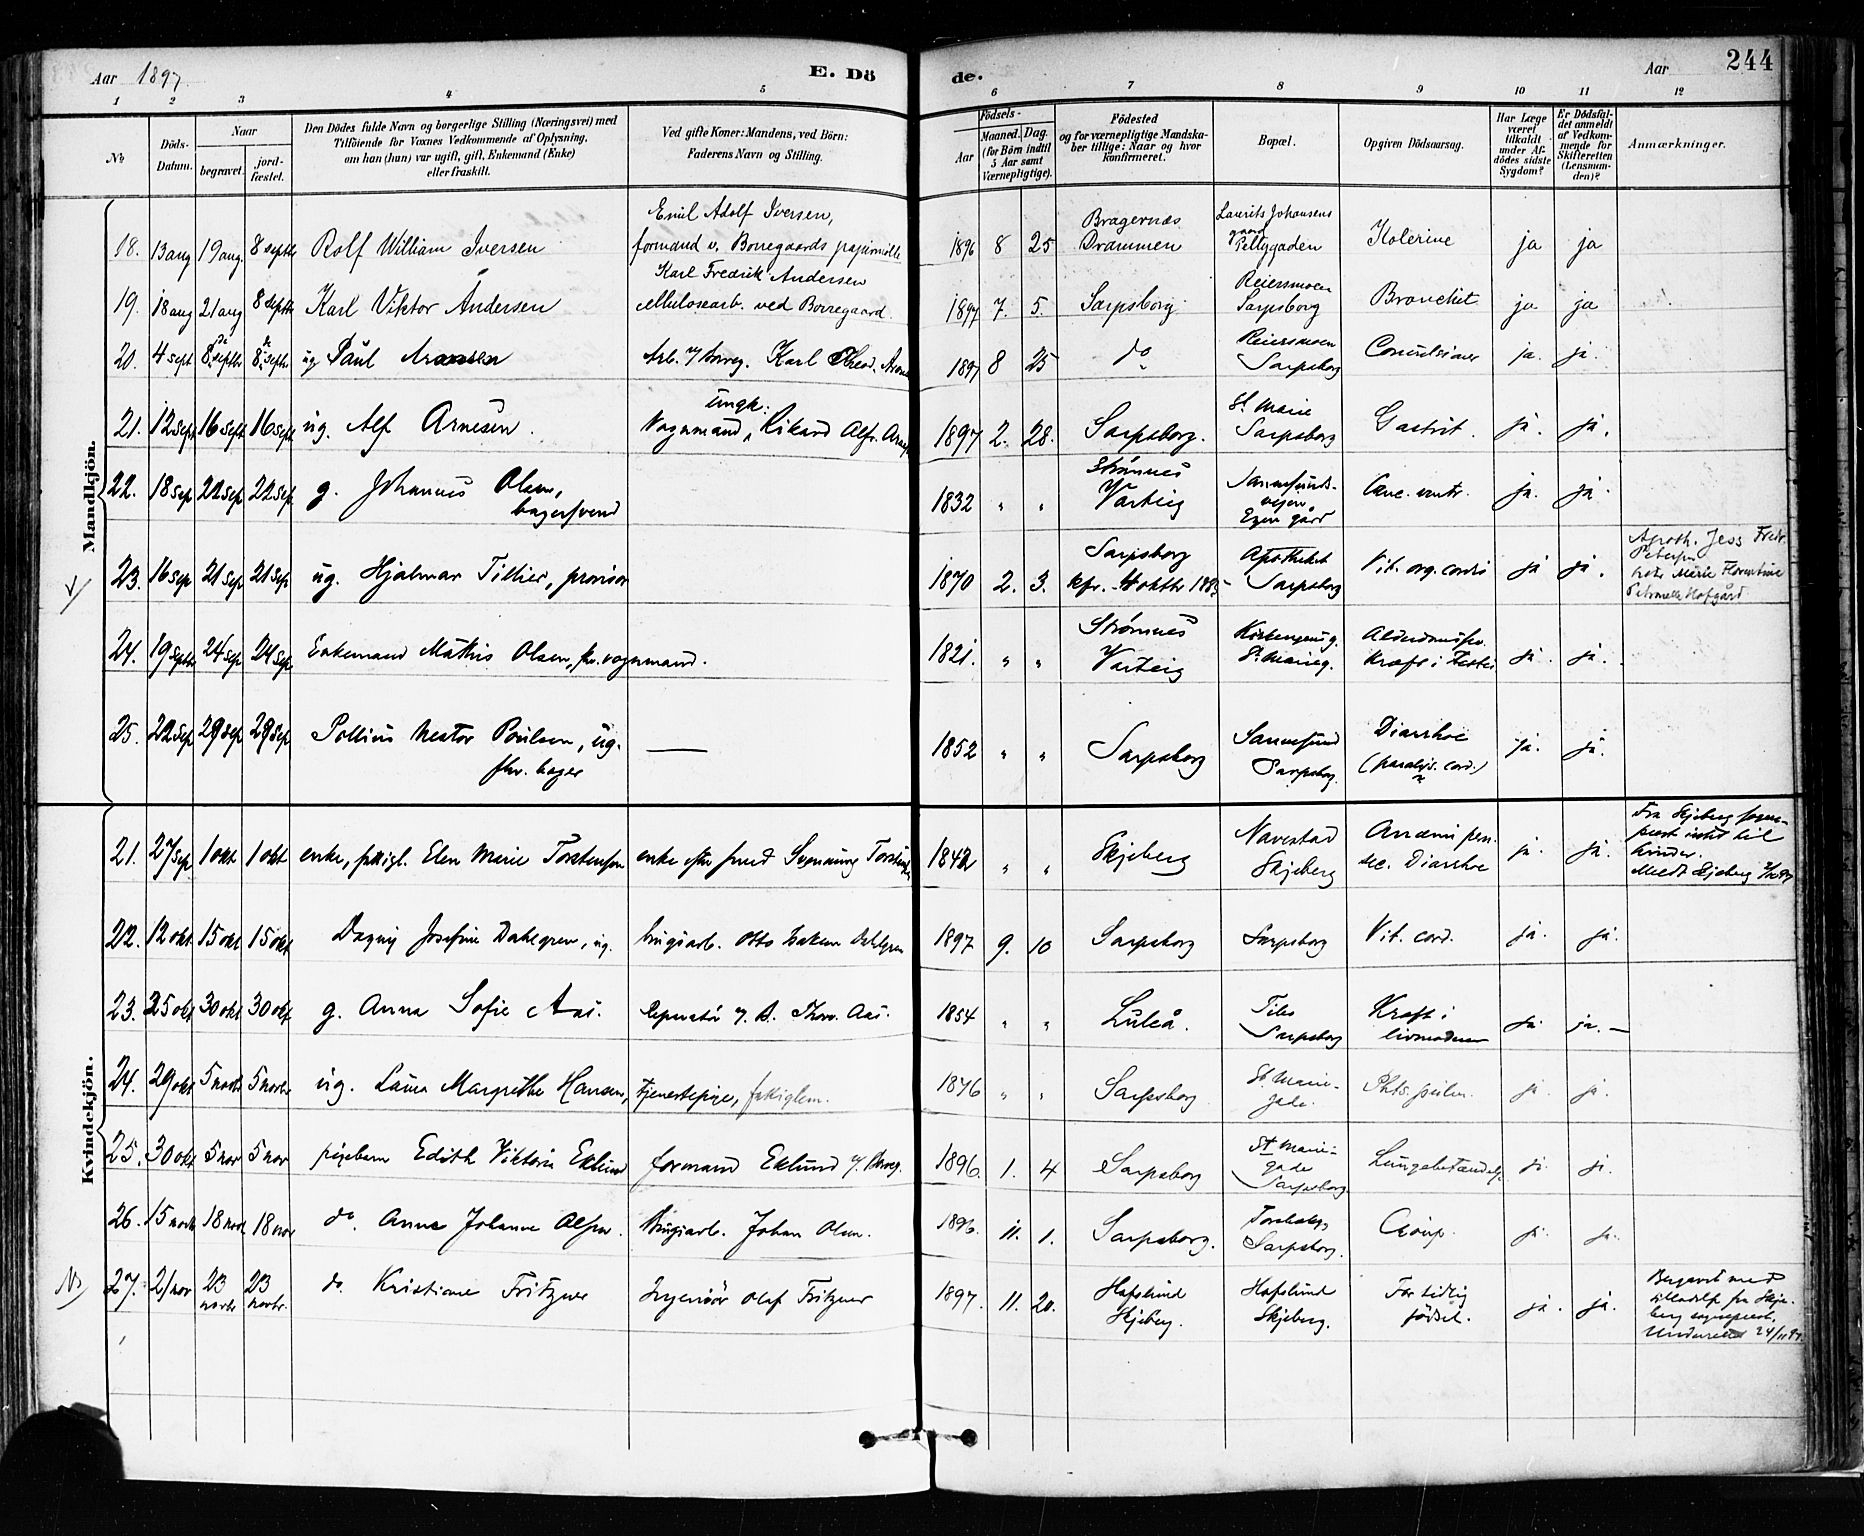 Aar 1897. E. Dö de. Aar 244
1 2 3 4 5 6 7 8 9 10 11 12
No
Döds-Datum.
Naar
begravet.
jord-fæstet.
Den Dödes fulde Navn og borgerlige Stilling (Næringsvei) med
Tilföiende for Voxnes Vedkommende af Oplysning,
om han (hun) var ugift, gift, Enkemand (Enke)
eller fraskilt.
Ved gifte Koner: Mandens, ved Börn:
Faderens Navn og Stilling.
Födsels-
Aar
Maaned. Dag.
(for Börn indtil
5 Aar samt
Værnepligtige).
Födested
og for værnepligtige Mandska-
ber tillige: Naar og hvor
konfirmeret.
Bopæl.
Opgiven Dödsaarsag.
Har Læge
været
tilkaldt
under Af-
dödes sidste
Sygdom?
Er Dödsfal-
det anmeldt
af Vedkom-
mende for
Skifteretten
(Lensman-
den)?
Anmærkninger.
Mandkjön.
18. 13 aug 19 aug. 8 septbr Rolf William Iversen
Emil Adolf Iversen,
formand v. Borregaards papirmölle
1896 8 25
Bragernæs
Drammen
Laurits Johansens
gaard
Pellygaden
Kolerine ja ja
19. 18 aug 21 aug 8 septbr Karl Viktor Andersen
Karl Fredrik Andersen
cellulosearb. ved Borregaard.
1897 7. 5. Sarpsborg
Reiersmoen
Sarpsborg
Bronchit ja ja
20. 4 sept 8 septbr 8 septbr ug Paul Aronsen
Arb. v/ Borreg. Karl
1897 8 25 do
Reiersmoen
Sarpsborg
Convulsioner ja. ja.
21. 12 sept 16 sept 16 sept ug. Alf Arnesen.
ungk:
Vognmand, Rikard Alfr.
1897 2. 28. Sarpsborg.
St. Marie
Sarpsborg
Gastrit. ja. ja.
22. 18 sep 22 sep 22 sep g. Johannes Olsen,
bagersvend
1832 " "
Strömnes
Varteig
Sannesunds-
vejen
Egen gård
ja. ja.
23. 16 sep 21 sep 21 sep ug. Hjalmar Tillier, provisor
1870 2. 3.
Sarpsborg
kfr. 4 oktbr 1885
Apotheket
Sarpsborg
Vit. org. cordis ja ja.
Apoth. Jess Fredr.
Petersen
Marie Florentine
Petronelle Hofgård
24. 19 septbr 24 sep 24 sep Enkemand Mathis Olsen, fhv. vognmand.
1821. " "
Strömnes
Varteig
St. Marieg.
ja. ja.
25. 22 sep 29 sep 29 sep Pollius Nestor Poulsen, ug.
fhv. bager
1852 " " Sarpsborg
Sannesund
Sarpsborg.
Diarrhoe
(paralys. cord.)
ja. ja.
Kvindekjön.
21. 27 sep 1 okt 1 okt enke, fattigl. Elen Marie Torstensen enke efter
1842 " " Skjeberg
Navestad
Skjeberg
Anæmi pern.
sec. Diarrhoe
ja. ja.
Fra Skjeberg sogne-
prest intet til
hinder.
Medt Skjeberg
22. 12 okt 15 okt 15 okt Dagny Josefine Dahlgren, ug. brugsarb. Otto Dahlgren
1897 9. 10 Sarpsborg Sarpsborg Vit. cord. ja. ja.
23. 25 okt 30 okt 30 okt g. Anna Sofie Aas. Reparatör v/ B. Thov. Aas.
1854 " " Luleå.
Sarpsborg
Kræft i
livmoderen
ja ja. —
24. 29 okt 5 novbr 5 novbr ug. Laura Margrethe Hansen, tjenestepige, fattiglem.
1876 " " Sarpsborg
St. Marie-
gade.
Phts. pulm. ja ja.
25. 30 okt 5 nov 5 nov pigebarn Edith Viktoria Eklund formand Eklund v/ Borreg.
1896. 1. 4 Sarpsborg
St Marie-
gade
Sarpsborg
Lungebetændelse ja. ja.
26. 15 novbr 18 nov 18 nov do. Anna Johanne Olsen. Brugsarb. Johan Olsen.
1896. 11. 1. Sarpsborg.
Sarpsborg.
Croup. ja. ja.
27. 21 nov 23 novbr 23 novbr. do Kristiane Fritzner Ingeniör Olaf Fritzner
1897. 11. 20.
Hafslund
Skjeberg.
Hafslund
Skjeberg.
For tidlig
födsel.
ja. ja.
Begravet med
tilladelse fra Skje-
berg sogneprest.
Underrettet 24/11 97.